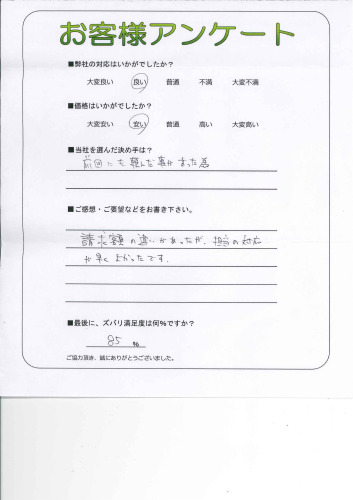 お客様アンケート
■弊社の対応はいかがでしたか?
大変良い 良い 普通 不満 大変不満
■価格はいかがでしたか?
大変安い 安い 普通 高い 大変高い
■当社を選んだ決め手は?
前回にも頼んだ事があった為
■ご感想・ご要望などをお書き下さい。
請求額の違いがあったが、担当の対応
が早くよかったです.
■最後に、ズバリ満足度は何%ですか?
85 %
ご協力頂き、誠にありがとうございました。